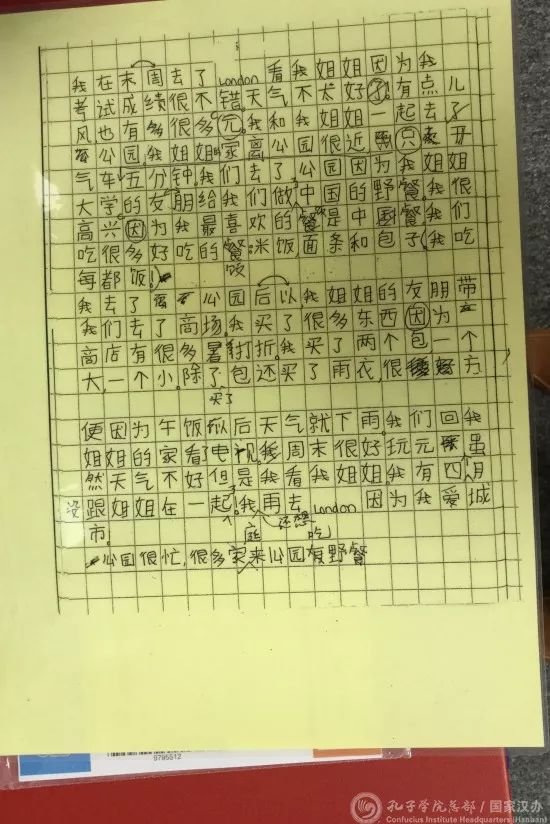 我在末周去了London看我姐姐因为我
考试成绩很不错.天气不太好了.有点儿
风也有多很多元.我和我姐姐一起去了
公园我姐姐家离公园很近 只 开
气车五分钟.我们去了公园因为我姐姐
大学的友朋给我们做中国的野餐.我很
高兴因为我最喜欢的餐是中国餐.我们
吃很多好吃的餐:米饭,面条和包子.我吃
饭
每都饭!
我去了 公园后以我姐姐的友朋带
我们去了商场.我买了很多东西因为
商店有很多 打折.我买了两个包一个
大,一个小.除了包还买了雨衣,很 好方
买了
便因为午饭以后天气就下雨.我们回我
姐姐的家看了电视.我周末很好玩元 虽
然天气不好但是我看我姐姐.我有四月
没跟姐姐在一起.我再去London 因为我爱城
还想
市.
庭 吃
公园很忙,很多家来公园有野餐
9795512
孔子学院总部/国家汉办
Confucius Institute Headquarters (Hanban)